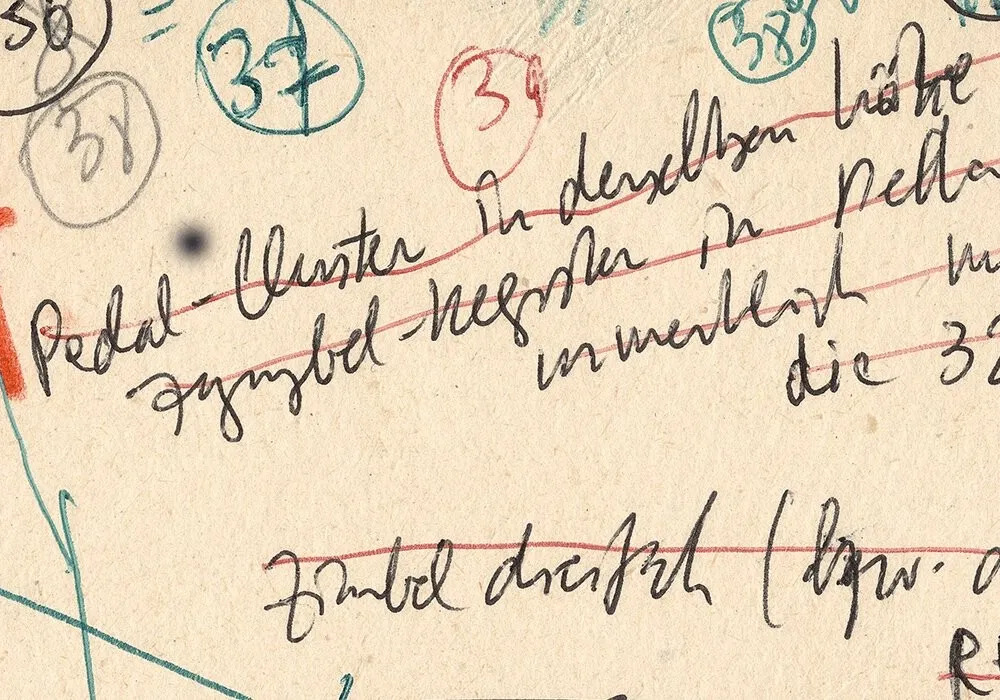 36 37 34 388
38
Pedal-Cluster in derselben Höhe
Zymbel-Register in
unmerklich
die 32
Zimbel dreifach (bzw.